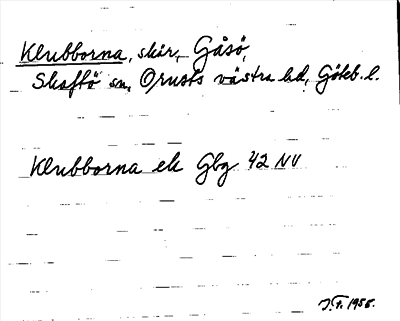 Klubborna, skär, Gåsö,
Skaftö sn, Orusts västra hd, Göteb. l.
Klubborna ek Gbg 42 NV
J.F. 1956.